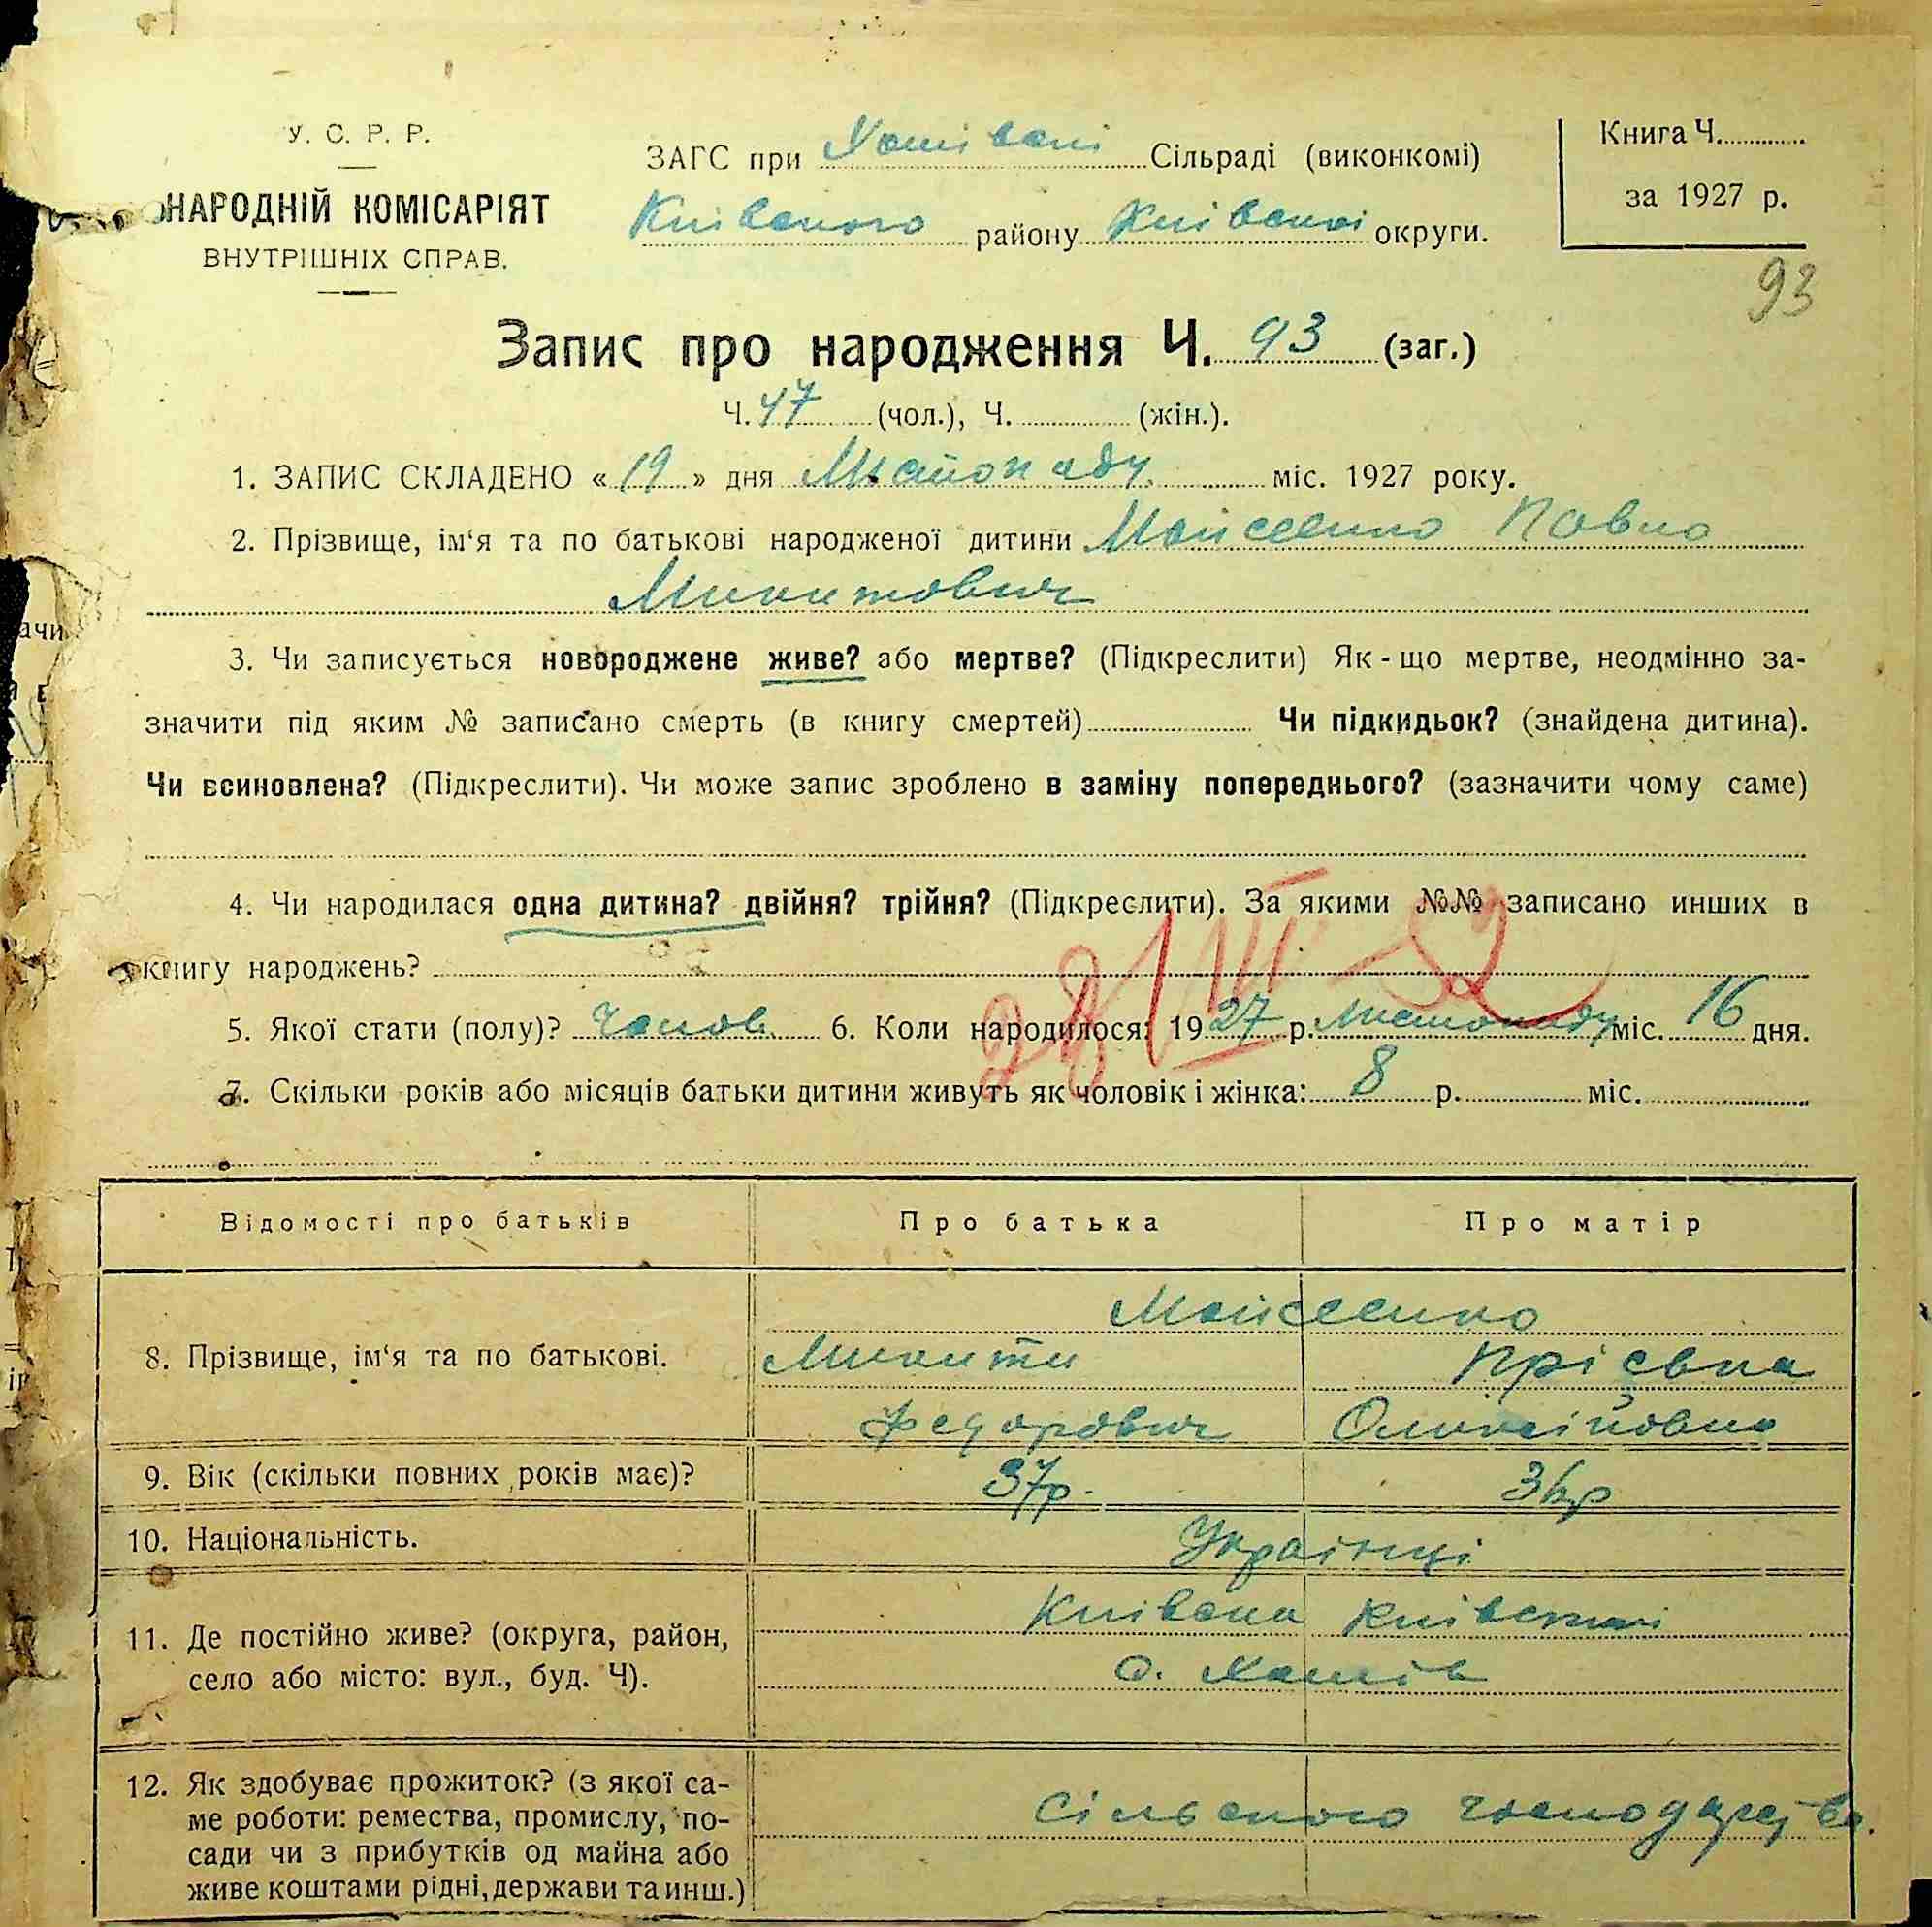 У. С. Р. Р.
НАРОДНІЙ КОМІСАРІЯТ
ВНУТРІШНІХ СПРАВ.
ЗАГС при Хотівській Сільраді (виконкомі)
Київського району Київської округи.
Книга Ч.
за 1927 р.
93
Запис про народження Ч. 93 (заг.)
Ч. 47 (чол.), Ч. (жін.).
1. ЗАПИС СКЛАДЕНО «19» дня Листопаду міс. 1927 року.
2. Прізвище, ім'я та по батькові народженої дитини Мойсеенко Павло
Микитович
3. Чи записується новороджене живе? або мертве? (Підкреслити) Як-що мертве, неодмінно за-
значити під яким № записано смерть (в книгу смертей) Чи підкидьок? (знайдена дитина).
Чи всиновлена? (Підкреслити). Чи може запис зроблено в заміну попереднього? (зазначити чому саме)
4. Чи народилася одна дитина? двійня? трійня? (Підкреслити). За якими №№ записано инших в
книгу народжень?
5. Якої стати (полу)? Чолов. 6. Коли народилося: 1927 р. Листопаду міс. 16 дня.
7. Скільки років або місяців батьки дитини живуть як чоловік і жінка: 8 р. міс.
Відомості про батьків Про батька Про матір
8. Прізвище, ім'я та по батькові.
Мойсеенко
Микита
Федорович Олексіївна
9. Вік (скільки повних років має)? 37р.
10. Національність. Українці
11. Де постійно живе? (округа, район,
село або місто: вул., буд. Ч).
Київська Київський
с. Хотів
12. Як здобуває прожиток? (з якої са-
ме роботи: ремества, промислу, по-
сади чи з прибутків од майна або
живе коштами рідні, держави та инш.)
Сільського господарства.